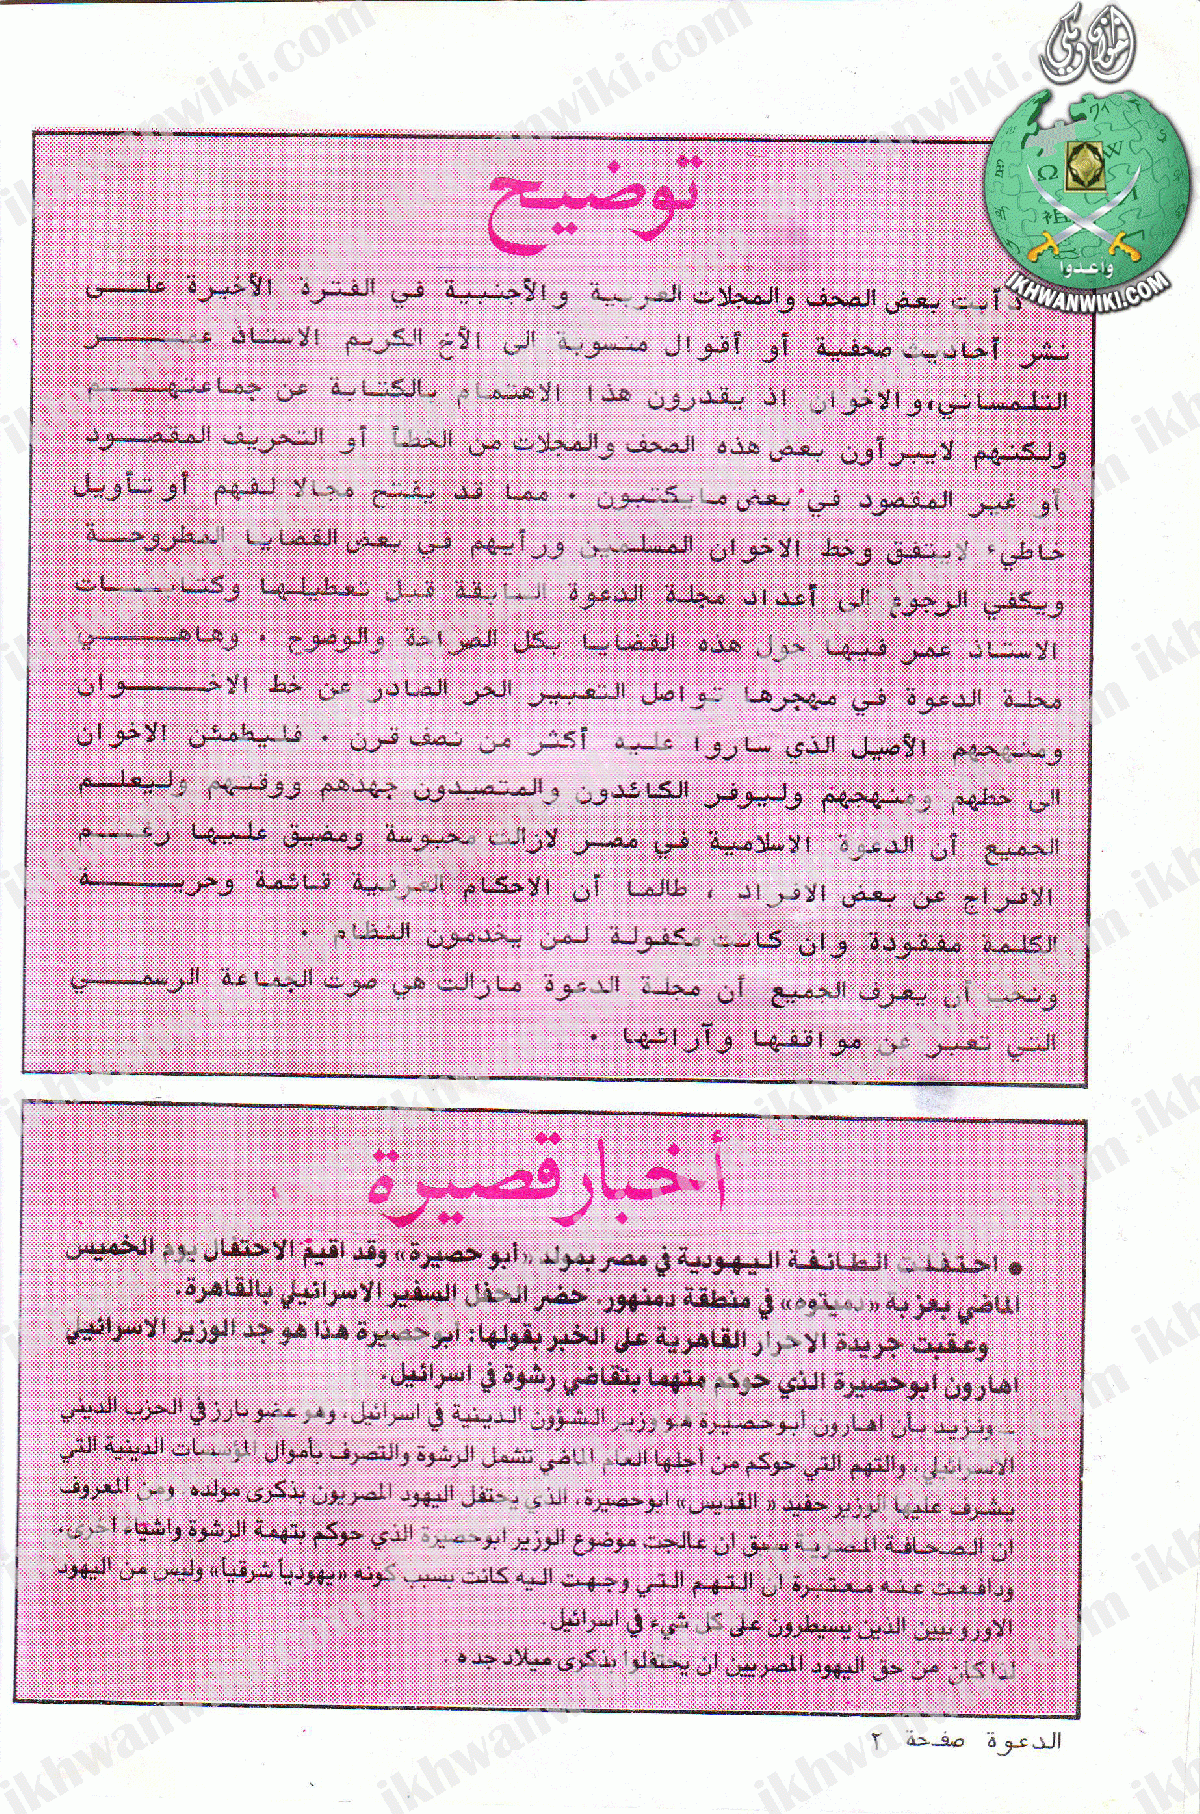 توضيح
دأبت بعض الصحف والمجلات العربية والأجنبية في الفترة الأخيرة على
نشر أحاديث صحفية أو أقوال منسوبة الى الأخ الكريم الاستاذ عمر
التلمساني، والاخوان اذ يقدرون هذا الاهتمام بالكتابة عن جماعتهم
ولكنهم لايبرأون بعض هذه الصحف والمجلات من الخطأ أو التحريف المقصود
أو غير المقصود في بعض مايكتبون . مما قد يفتح مجالا لفهم أو تأويل
خاطيء لايتفق وخط الاخوان المسلمين ورأيهم في بعض القضايا المطروحة
ويكفي الرجوع الى أعداد مجلة الدعوة السابقة قبل تعطيلها وكتابات
الاستاذ عمر فيها حول هذه القضايا بكل الصراحة والوضوح . وهاهي
مجلة الدعوة في مهجرها تواصل التعبير الحر الصادر عن خط الاخوان
ومنهجهم الأصيل الذي ساروا عليه أكثر من نصف قرن . فليطمئن الاخوان
الى خطهم ومنهجهم وليوفر الكائدون والمتصيدون جهدهم ووقتهم وليعلم
الجميع أن الدعوة الاسلامية في مصر لازالت محبوسة ومضيق عليها رغم
الافراج عن بعض الافراد ، طالما أن الاحكام العرفية قائمة وحرية
الكلمة مفقودة وان كانت مكفولة لمن يخدمون النظام .
ونحب أن يعرف الجميع أن مجلة الدعوة مازالت هي صوت الجماعة الرسمي
التي تعبر عن مواقفها وآرائها .
أخبار قصيرة
• احتفلت الطائفة اليهودية في مصر بمولد «أبو حصيرة» وقد اقيم الاحتفال يوم الخميس
الماضي بعزبة «دميتوه» في منطقة دمنهور. حضر الحفل السفير الاسرائيلي بالقاهرة.
وعقبت جريدة الاحرار القاهرية على الخبر بقولها: أبو حصيرة هذا هو جد الوزير الاسرائيلي
اهارون ابو حصيرة الذي حوكم متهما بتقاضي رشوة في اسرائيل.
ـ ونزيد بأن اهارون أبو حصيرة هو وزير الشؤون الدينية في اسرائيل، وهو عضو بارز في الحزب الديني
الاسرائيلي، والتهم التي حوكم من أجلها العام الماضي تشمل الرشوة والتصرف بأموال المؤسسات الدينية التي
يشرف عليها الوزير حفيد «القديس» ابو حصيرة، الذي يحتفل اليهود المصريون بذكرى مولده ومن المعروف
ان الصحافة المصرية سبق ان عالجت موضوع الوزير ابو حصيرة الذي حوكم بتهمة الرشوة واشياء اخرى.
ودافعت عنه معتبرة ان التهم التي وجهت اليه كانت بسبب كونه «يهودياً شرقياً» وليس من اليهود
الاوروبيين الذين يسيطرون على كل شيء في اسرائيل.
لذا كان من حق اليهود المصريين ان يحتفلوا بذكرى ميلاد جده .
الدعوة صفحة ٢
واعدوا
IKHWANWIKI.COM
ikhwanwiki.com